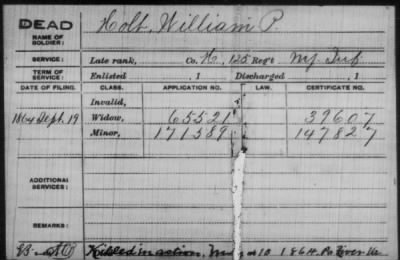 DEAD
NAME OF SOLDIER:
Holt, William P.
SERVICE:
Late rank, Co. H, 125 Reg't NY Inf
TERM OF SERVICE:
Enlisted , 1 Discharged , 1
DATE OF FILING. CLASS. APPLICATION NO. LAW. CERTIFICATE NO.
Invalid,
1864 Sept. 19 Widow, 65521 39607
Minor, 171589 147827
ADDITIONAL SERVICES:
REMARKS:
Killed in action, May 10 1864, Po River Va